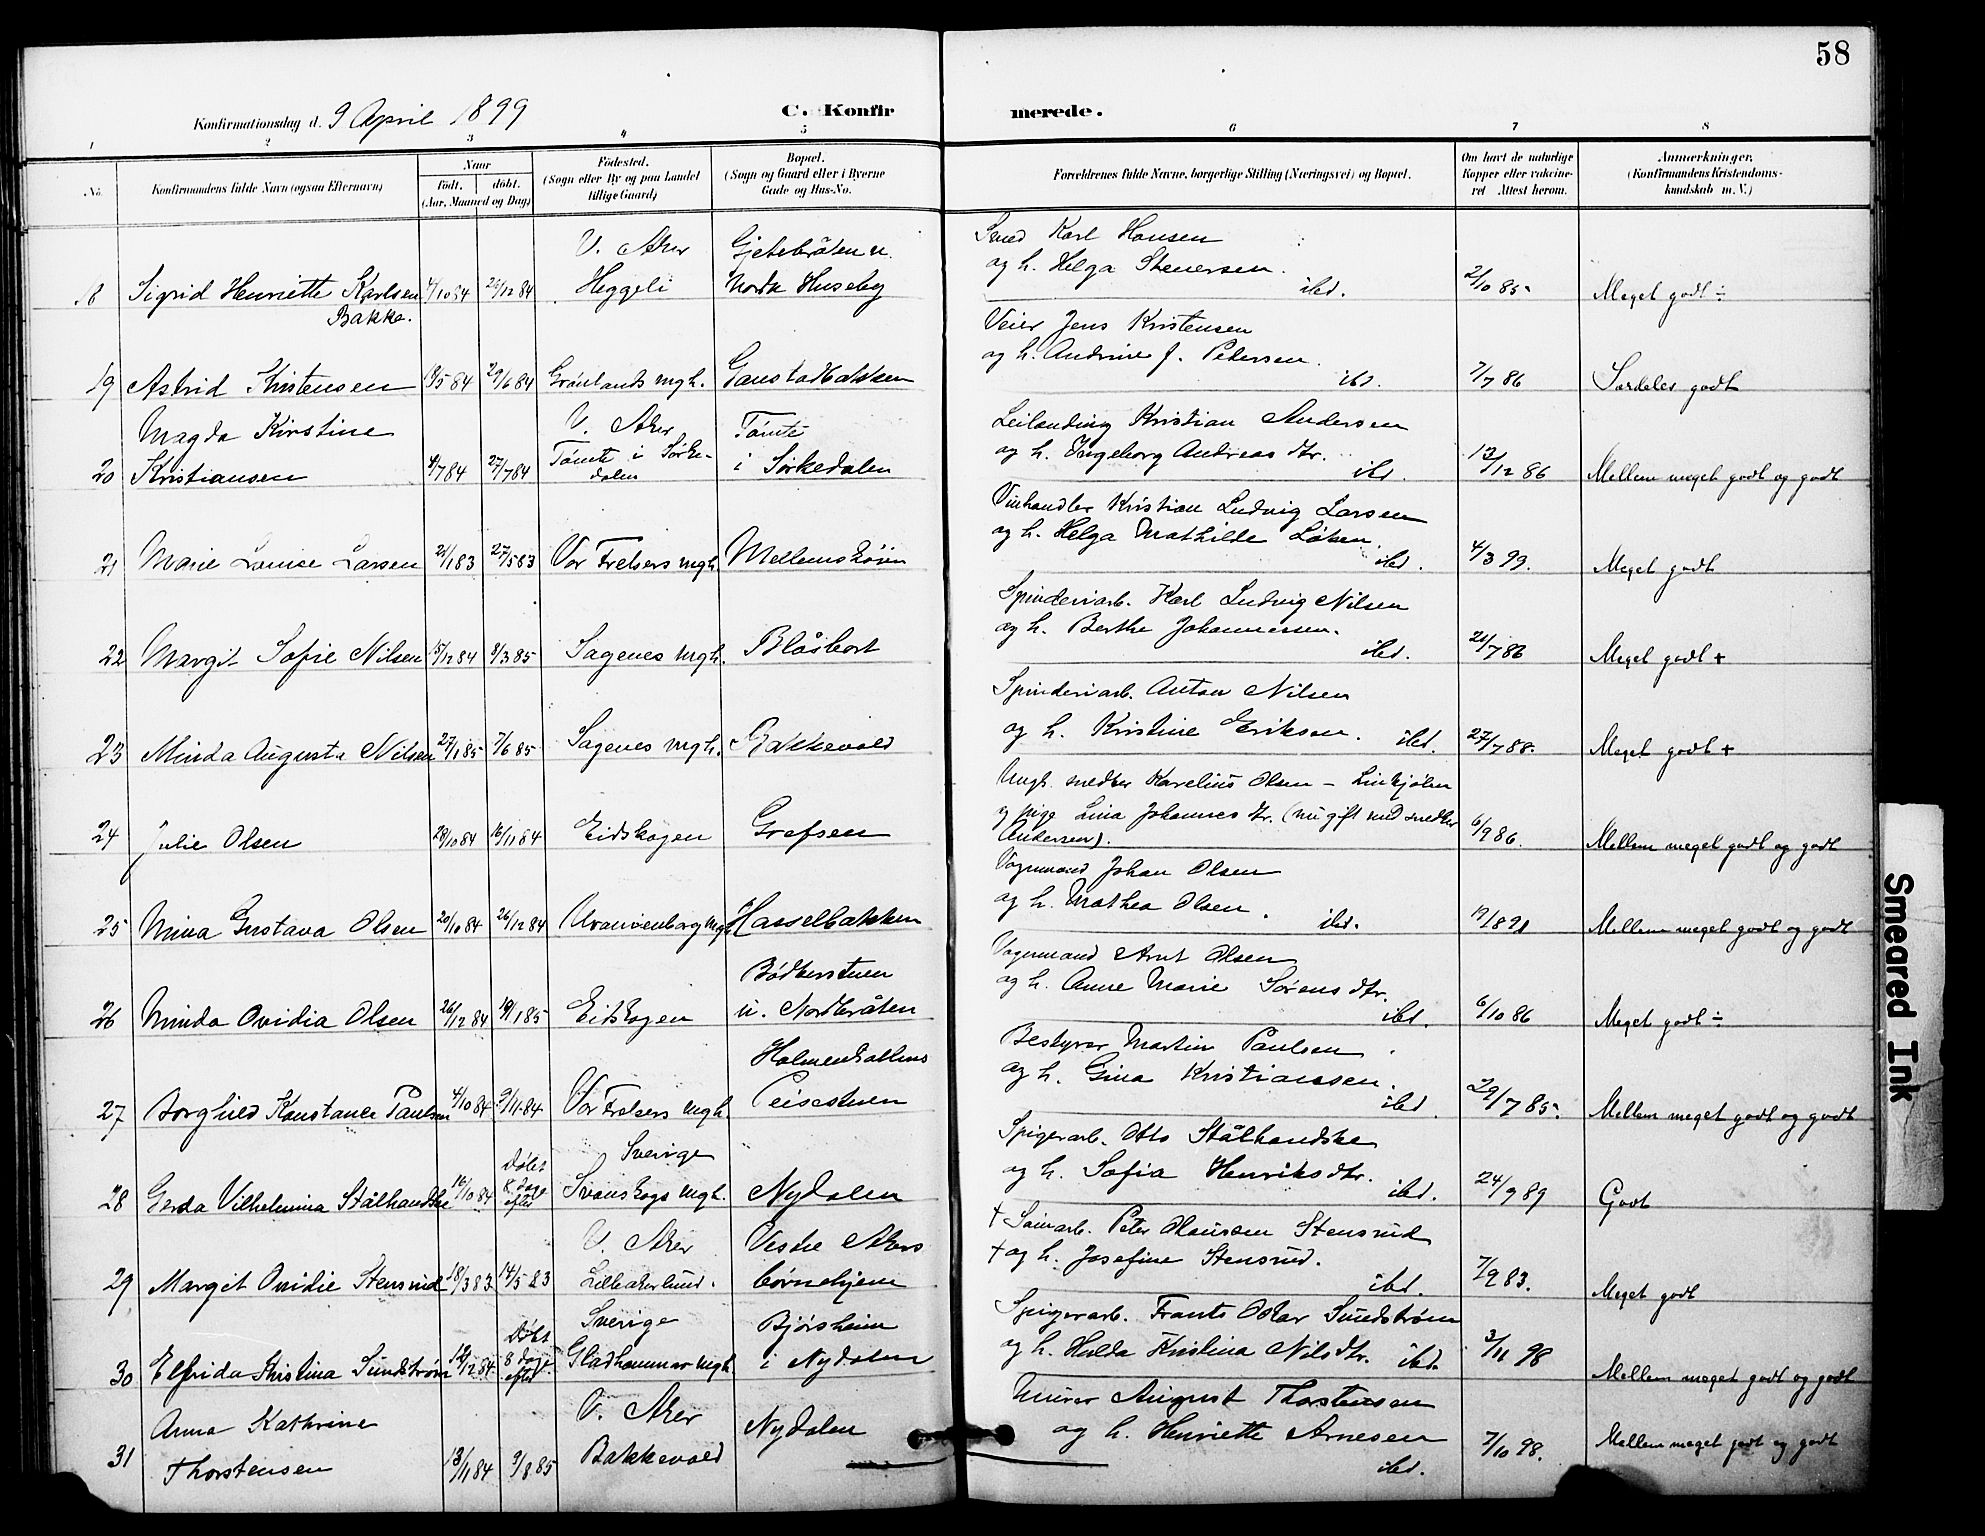 58
Konfirmationsdag d. 9 April 1899
C. Konfir merede.
1 2 3 4 5 6 7 8
No.
Konfirmandens fulde Navn (ogsaa Efternavn)
Naar
født. døbt.
(Aar, Maaned og Dag)
Fødested.
(Sogn eller By og paa Landet
tillige Gaard)
Bopæl.
(Sogn og Gaard eller i Byerne
Gade og Hus-No.
Forældrenes fulde Navne, borgerlige Stilling (Næringsvei) og Bopæl.
Om havt de naturlige
Kopper eller vakcine-
ret Attest herom.
Anmærkninger.
(Konfirmandens Kristendoms-
kundskab m. V.)
V. Aker Gjetebråten u. Smed Karl Hansen
18 Sigrid Henriette Karlsen 4/10 84 26/12 84 Heggeli Nordre Huseby og h. Helga Stenersen. ibd. 2/10 85. Meget godt ÷
Bakke.
Veier Jens Kristensen
19 Astrid Kristensen 18/5 84 29/6 84 Grønlands mgh. Gaustadbakken og h. Andrine J. Petersen. ibd. 7/7 86 Særdeles godt
Magda Kirstine V. Aker Tømte Leilending Kristian Andersen
20 Kristiansen 4/7 84 27/7 84 Tømte i Sørke-dalen i Sørkedalen og h. Ingeborg Andreasdtr. ibd. 13/12 86 Mellem meget godt og godt
Vinhandler Kristian Ludvig Larsen
21 Marie Louise Larsen 21/1 83 27/5 83 Vor Frelsers mgh. Mellemskøien og h. Helga Mathilde Løken. ibd. 4/3 99. Meget godt
Spinderiarb. Karl Ludvig Nilsen
22 Margit Sofie Nilsen 15/12 84 8/3 85 Sagenes mgh. Blåsbort og h. Berthe Johannessen. ibd. 21/7 86 Meget godt +
Spinderiarb. Anton Nilsen
23 Minda Augusta Nilsen 27/1 85 7/6 85 Sagenes mgh. Bakkevold og h. Kristine Eriksen. ibd. 27/7 88. Meget godt +
Ungk. snedker Karelius Olsen – Linkjølen
24 Julie Olsen 28/10 84 16/11 84 Eidskogen Grefsen og pige Lina Johannesdtr. (nu gift med snedker 6/9 86. Mellem meget godt og godt
Andersen).
Vognmand Johan Olsen
25 Mina Gustava Olsen 20/10 84 26/12 84 Uranienborg mgh. Hasselbakken og h. Mathea Olsen. ibd. 19/8 91 Mellem meget godt og godt
Bødkerstuen Vognmand Arnt Olsen
26 Minda Ovidia Olsen 26/12 84 19/1 85 Eidskogen u. Nordbråten og h. Anne Marie Sørensdtr. ibd. 6/10 86 Meget godt ÷
Holmenkollens Bestyrer Martin Paulsen
27 Borghild Konstance Paulsen 4/10 84 9/11 84 Vor Frelsers mgh. Peisestuen og h. Gina Kristianssen. ibd. 29/7 85. Mellem meget godt og godt
Sverige Spigerarb. Otto Stålhandske
28 Gerda Vilhelmina Stålhandske 16/10 84 Døbt 8 dage efter Svanskogs mgh. Nydalen og h. Sofia Henriksdtr. ibd. 24/9 89 Godt
V. Aker Vestre Akers † Soinarb. Peter Olaussen Stensrud
29 Margit Ovidie Stensrud 18/3 83 14/5 83 Lilleakerlund. børnehjem † og h. Josefine Stensrud. ibd. 7/9 83. Meget godt
Sverige Bjørsheim Spigerarb. Frants Oskar Sundstrøm
30 Elfrida Kristina Sundstrøm 12/12 84 Døbt 8 dage efter Gladhammar mgh. i Nydalen og h. Hulda Kristina Nilsdtr. ibd. 3/11 98 Mellem meget godt og godt
Anna Kathrine V. Aker Nydalen Murer August Thorstensen
31 Thorstensen 13/11 84 9/8 85 Bakkevold og h. Henriette Arnesen ibd. 7/10 98. Mellem meget godt og godt
Smeared Ink